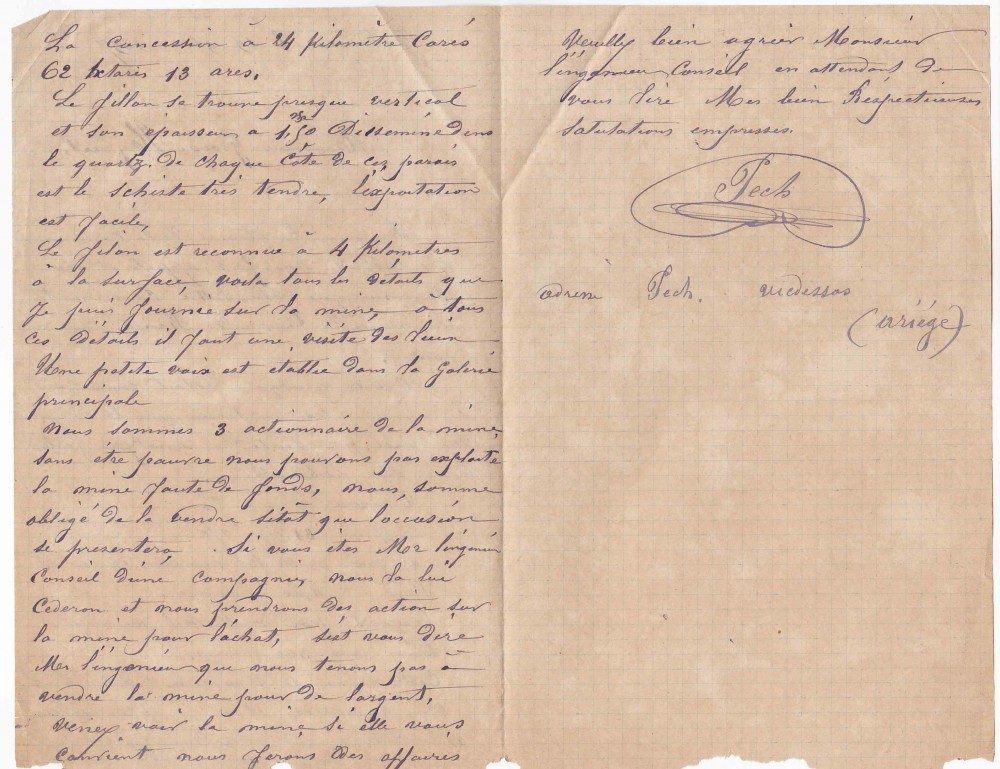 La concession à 24 kilomètre Carés
62 hctaris 13 ares.
Le fillon se trouve presque vertical
et son épaisseur à 1,50 Disséminé dens
le quartz. De chaque Côte de cez parais
est le schiste trés tendre, l'expoitation
est facile,
Le filon est reconnue à 4 kilomètres
à la surface, voila tous les détails que
Je puis fournir sur la mine, à tous
ces Détails il faut une visite des lieun
Une petite voix est etablie dans la Galerie
principale
Nous sommes 3 actionnaire de la mine,
sans étre pauvre nous pouvons pas exploite
la mine faute de fonds, nous, somme
obligé de la vendre sitôt que l'occasion
se presentera, . Si vous êtes Mer l'ingénieu
Conseil d'une Compagnie, nous la lui
Cederon et nous prendrons des action sur
la mine pour l'achat, s'est vous dire
Mer l'ingénieu que nous tenons pas à
vendre la mine pour de largent,
Venez voir la mine si elle vous
convient nous ferons des affaires
Veuilly bien agrier Monsieur
l'ingenieu Conseil en attendant de
vous lire Mes bien Réspectieuses
salutations empresses.
Pech
adresse Pech. vicdessos
(Ariége)